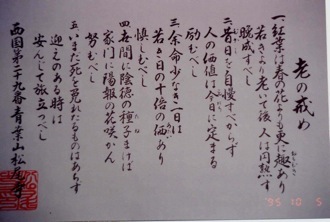 老の戒め
一、紅葉は春の花よりも更に趣あり
若きより老いて後、人は円熟す
晩成すべし
二、昔日を自慢すべからず
人の価値は今日に定まる
励むべし
三、余命少なき一日は
若き日の十倍の価あり
慎しむべし
四、世間に陰徳の種子まけば
家川に陽報の花咲かん
努むべし
五、いまだ死を免れたるものはあらず
迎えのある時は
安んじて旅立つべし
西国第二十九番青葉山松尾寺
'95 10 5